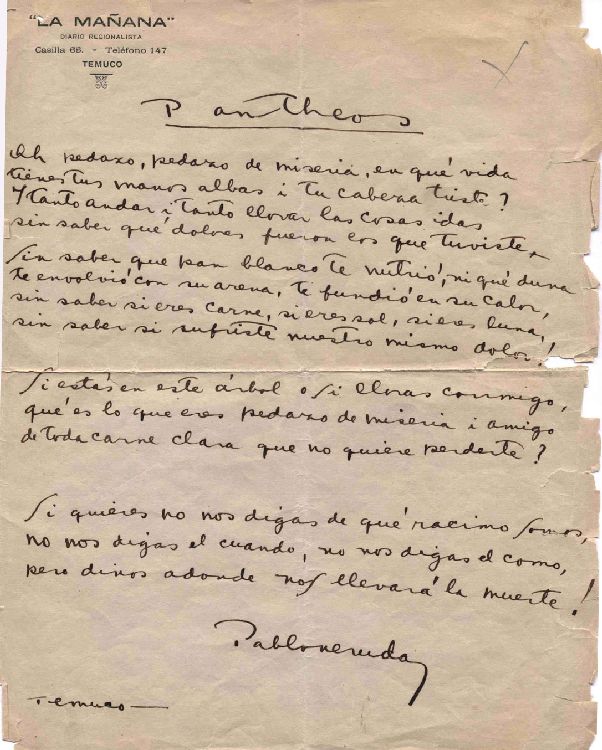 "LA MAÑANA"
DIARIO REGIONALISTA
Casilla 68. - Teléfono 147
TEMUCO
Pantheos
Oh pedazo, pedazo de miseria, en qué vida
tienes tus manos albas i tu cabeza triste?
Y tanto andar i tanto llorar las cosas idas
sin saber qué dolores fueron los que tuviste.
Sin saber que pan blanco te nutrió, ni qué duna
te envolvió con su arena, te fundió en su calor,
sin saber si eres carne, si eres sol, si eres luna,
sin saber si sufriste nuestro mismo dolor!
Si estás en este árbol o si lloras conmigo,
qué es lo que eres pedazo de miseria i amigo
de toda carne clara que no quiere perderte?
Si quieres no nos digas de qué racimo somos,
no nos digas el cuando, no nos digas el como,
pero dinos adonde nos llevará la muerte!
Pablo neruda
Temuco